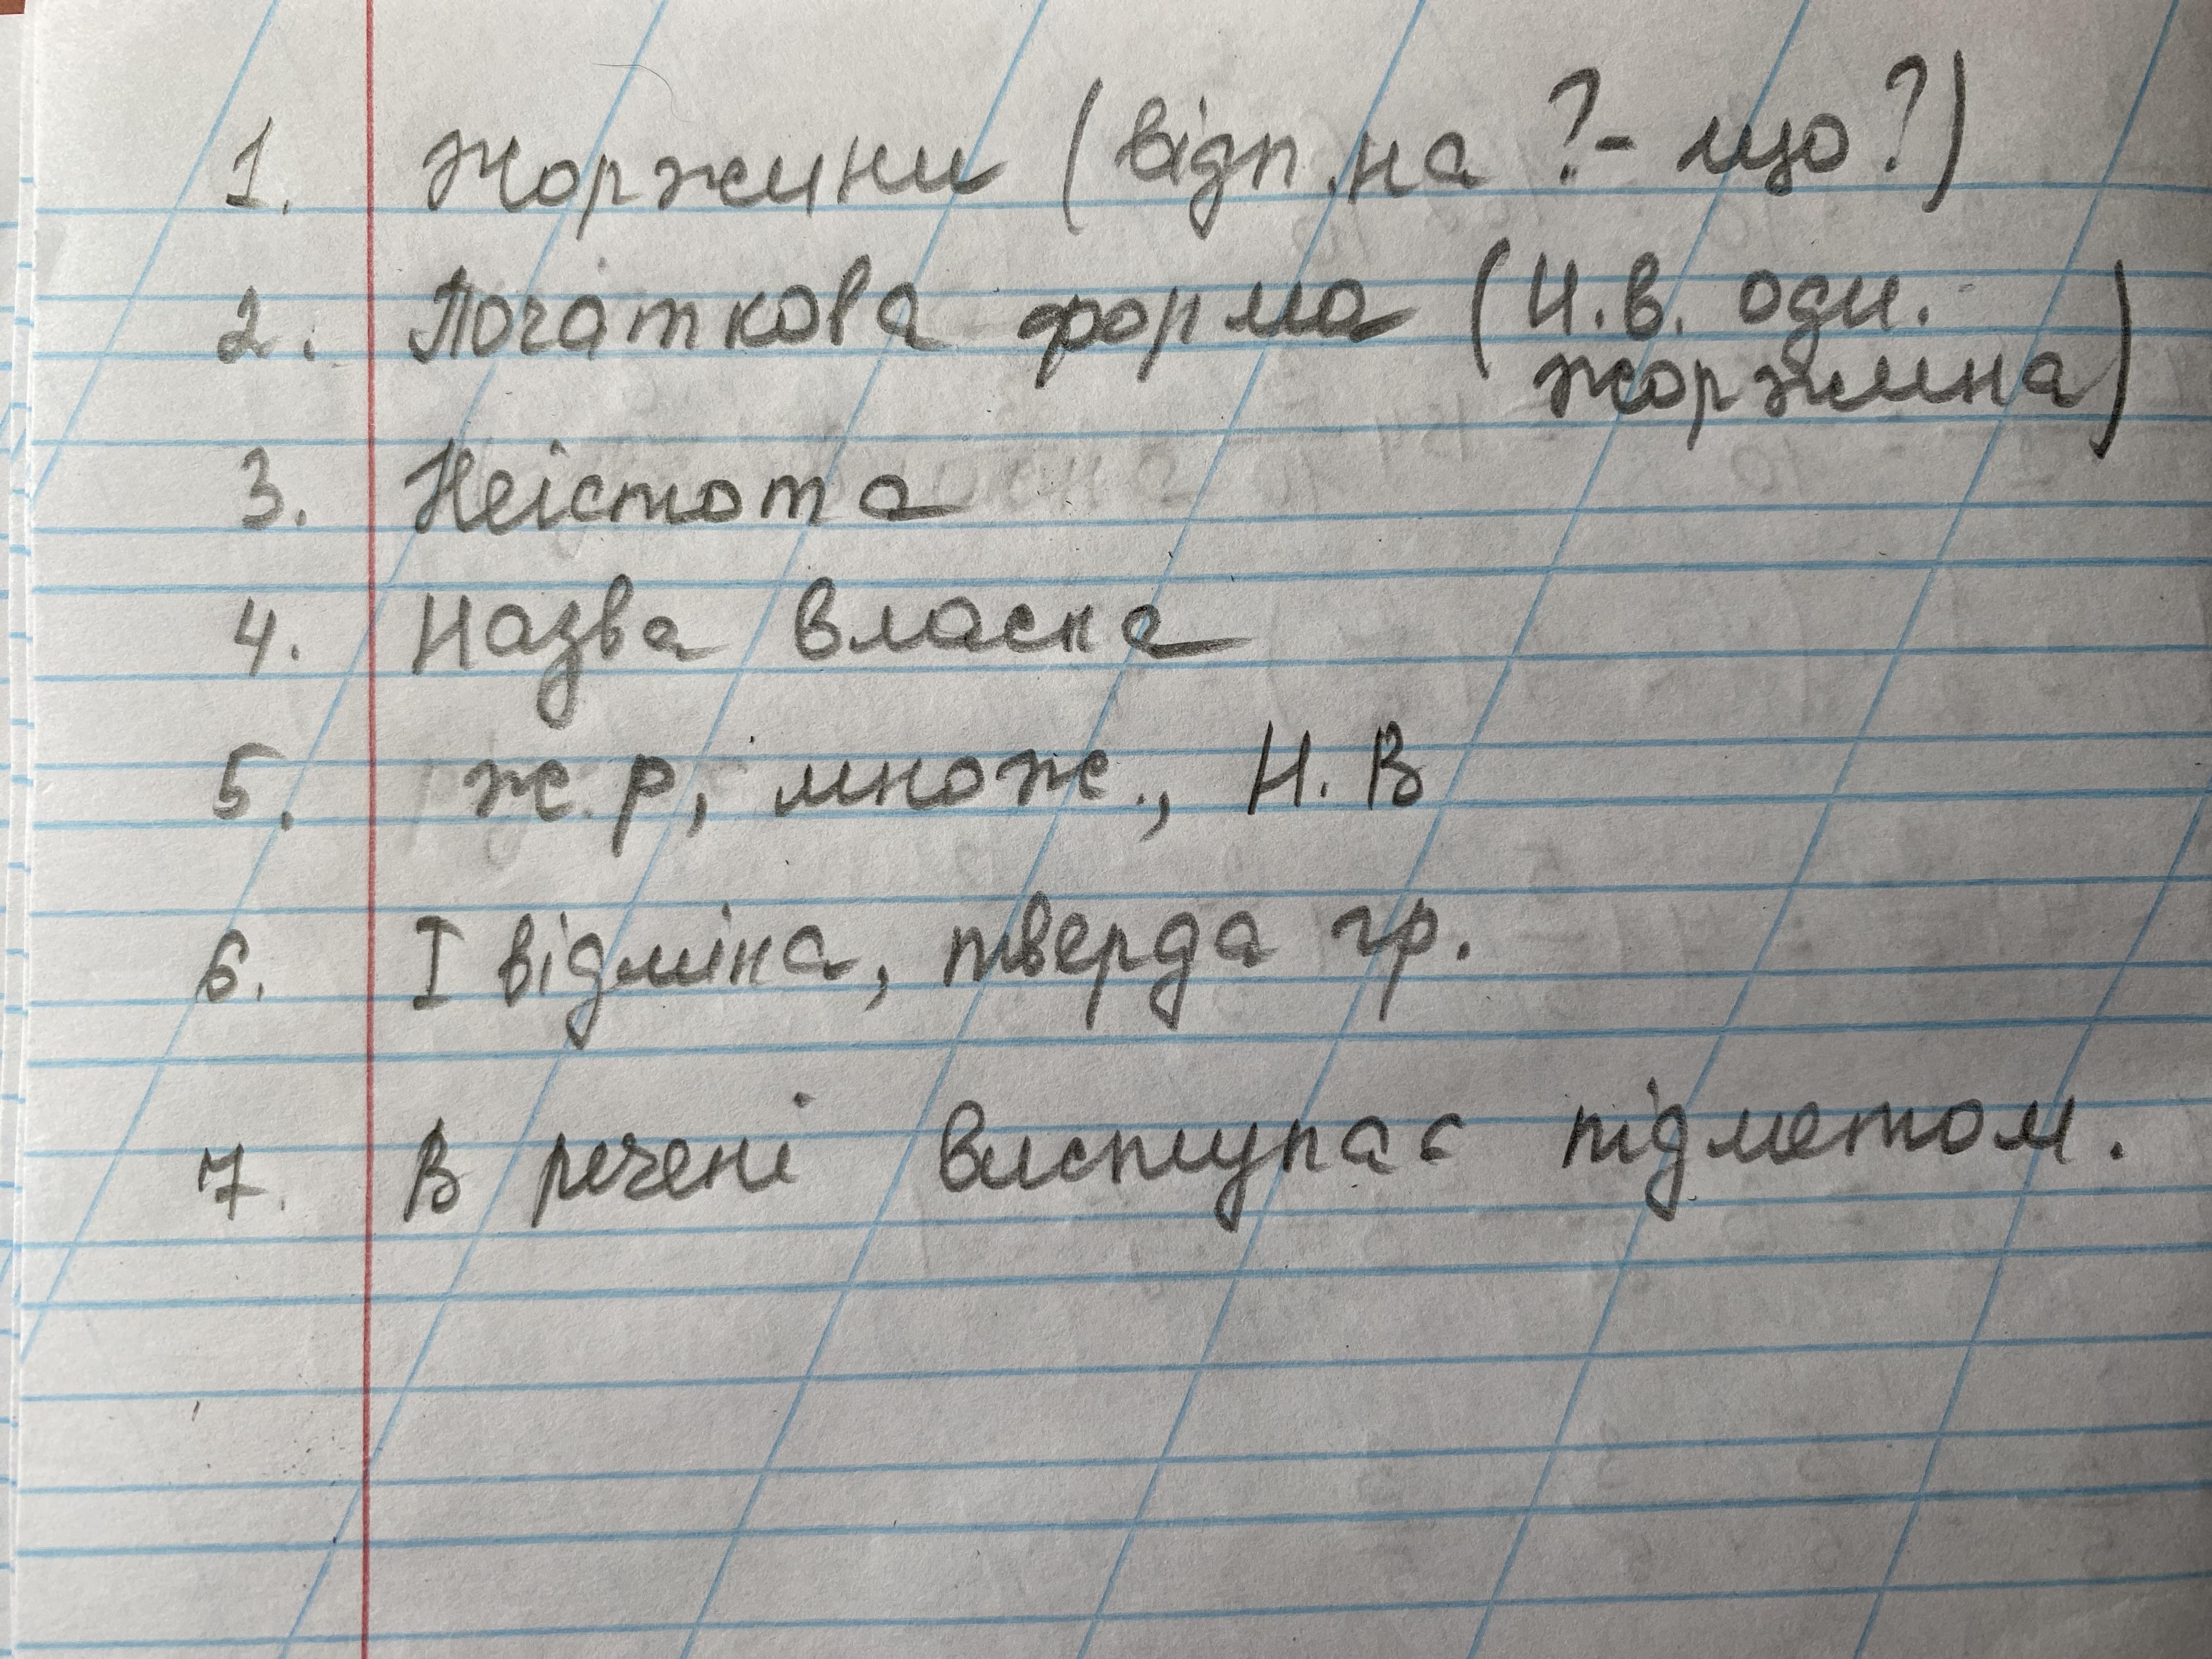 1. Жоржини (відп. на ?- що?)
2. Початкова форма (Н.в. одн.
жоржина)
3. Неістота
4. Назва власна
5. ж.р, множ., Н.В
6. I відміна, тверда гр.
7. В речені виступає підметом.